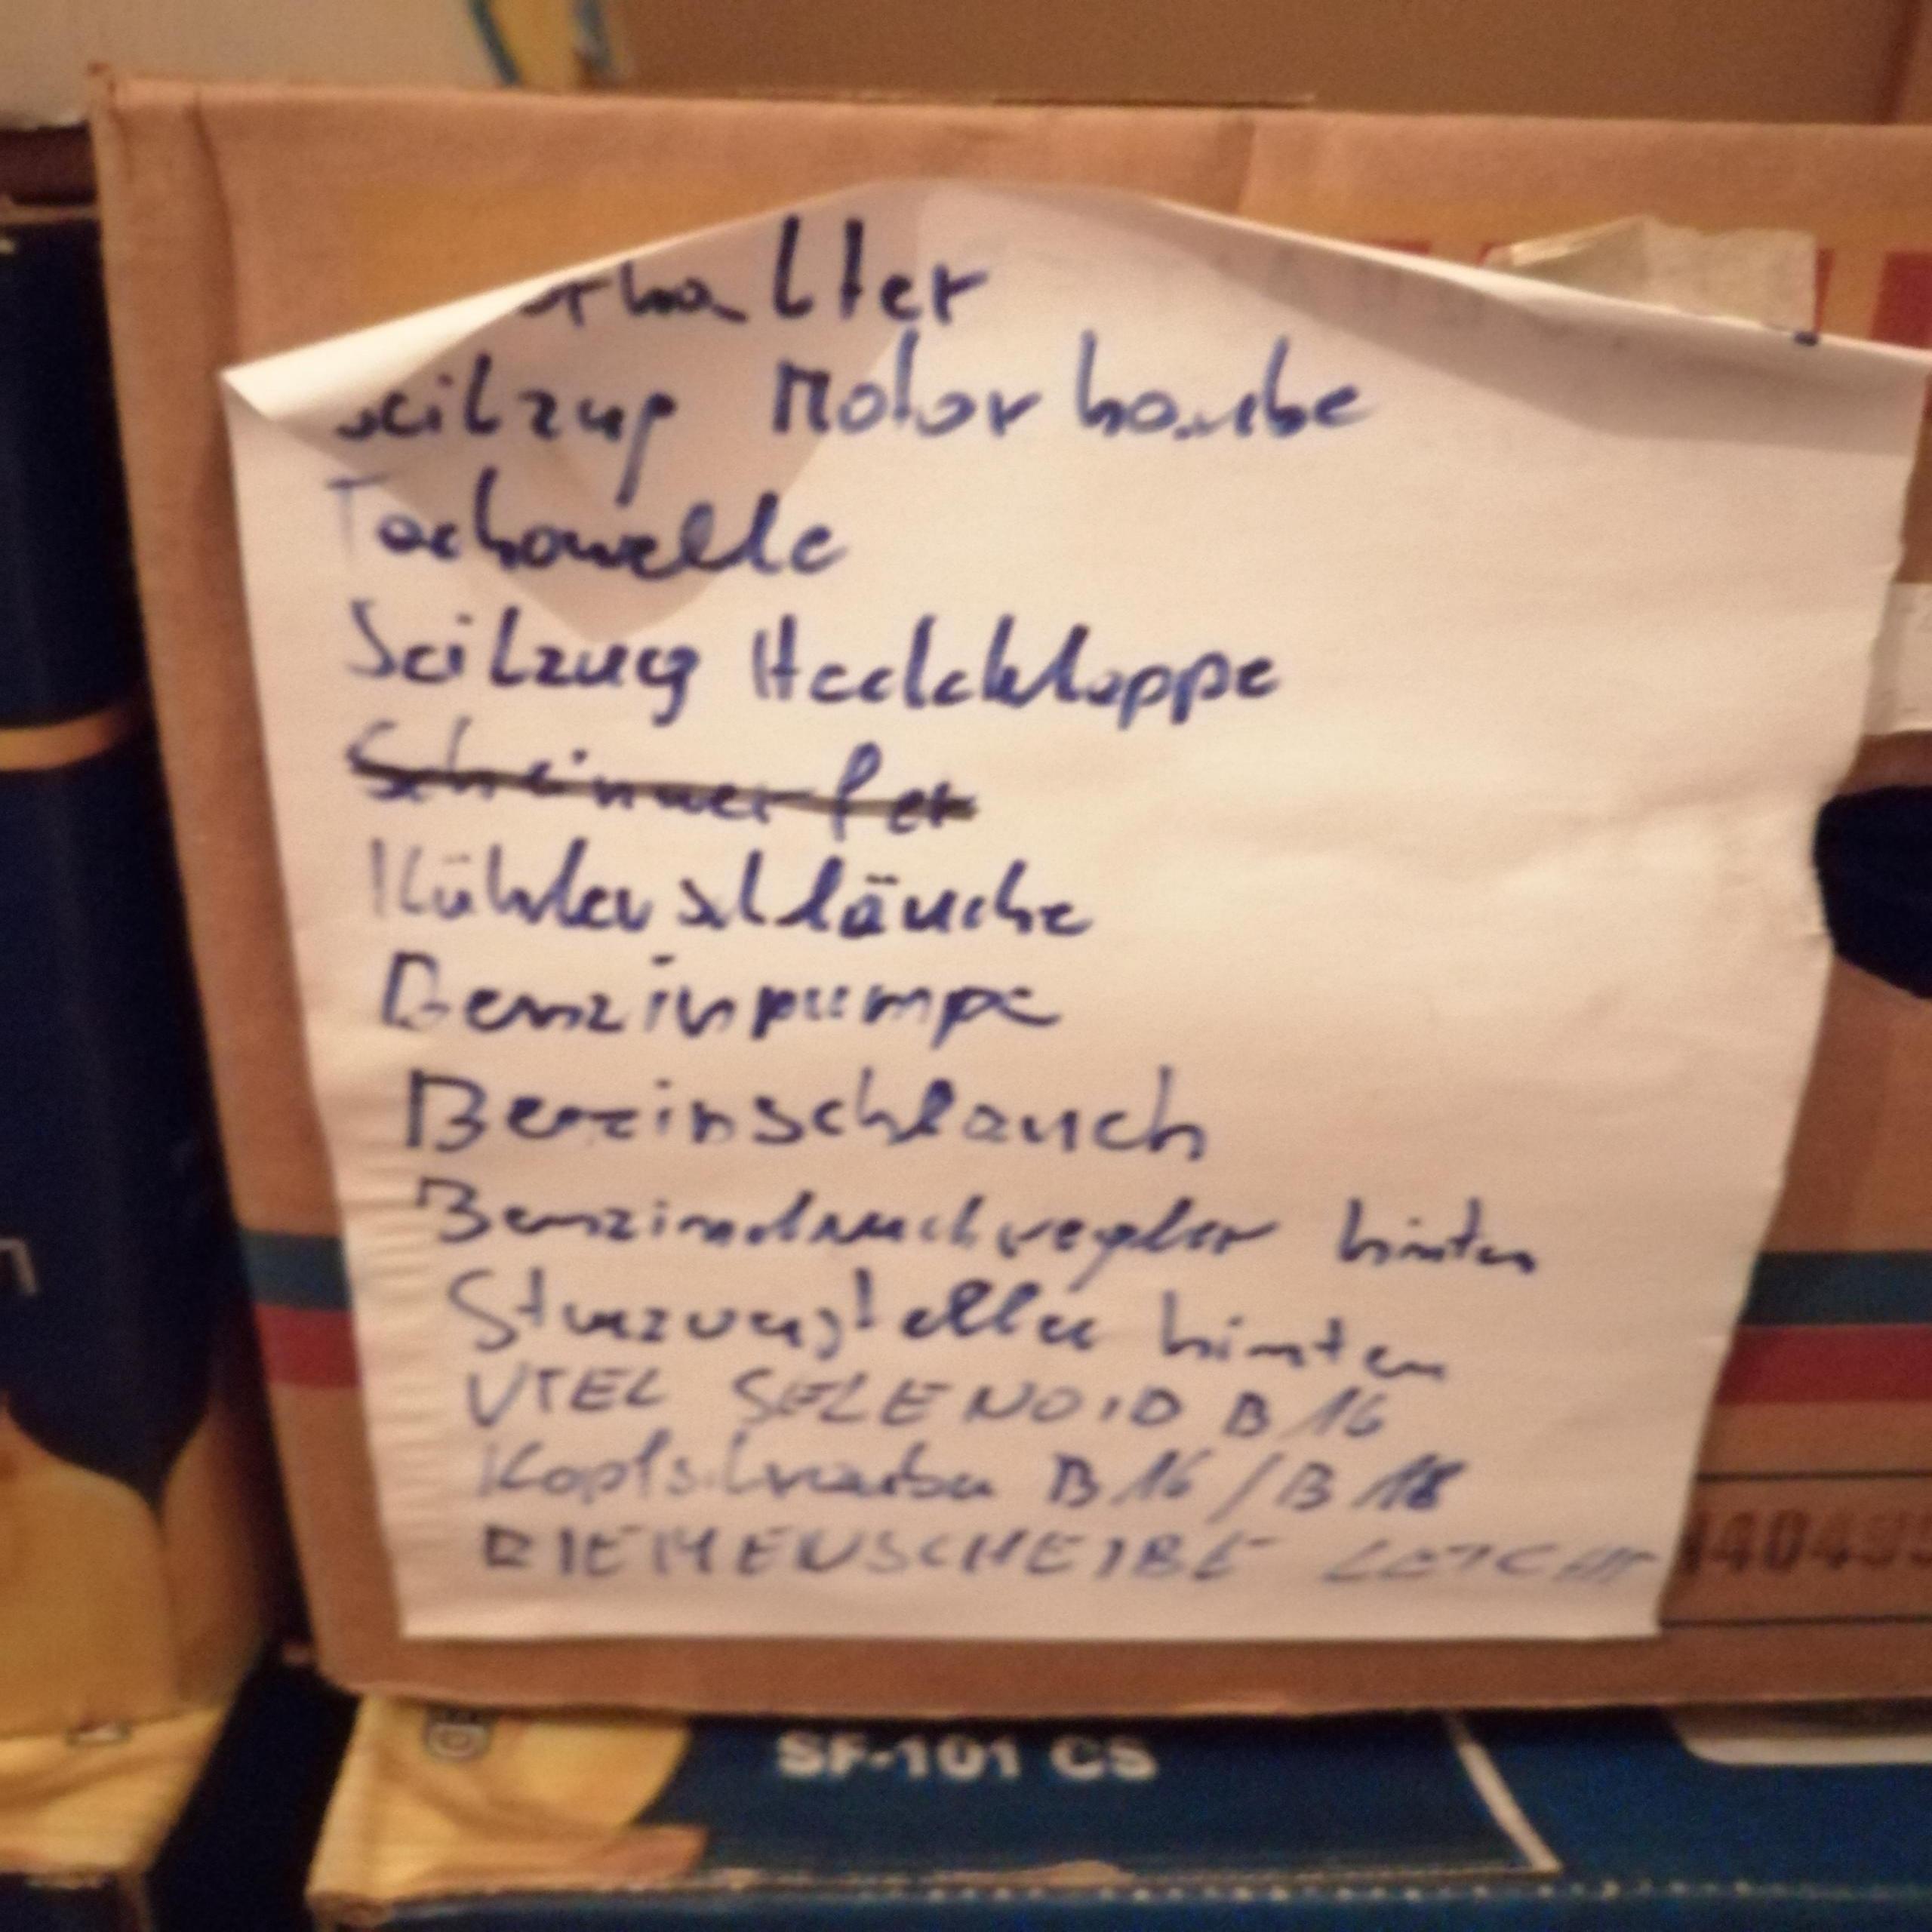 Seilzug Motorhaube
Tachowelle
Seilzug Heckklappe
Scheinwerfer
Kühlerschläuche
Benzinpumpe
Benzinschlauch
Benzindruckregler hinten
Sturzversteller hinten
VTEC SELENOID B16
Kopfschrauben B16/B18
RIEMENSCHEIBE LEICHT
SF-101 CS